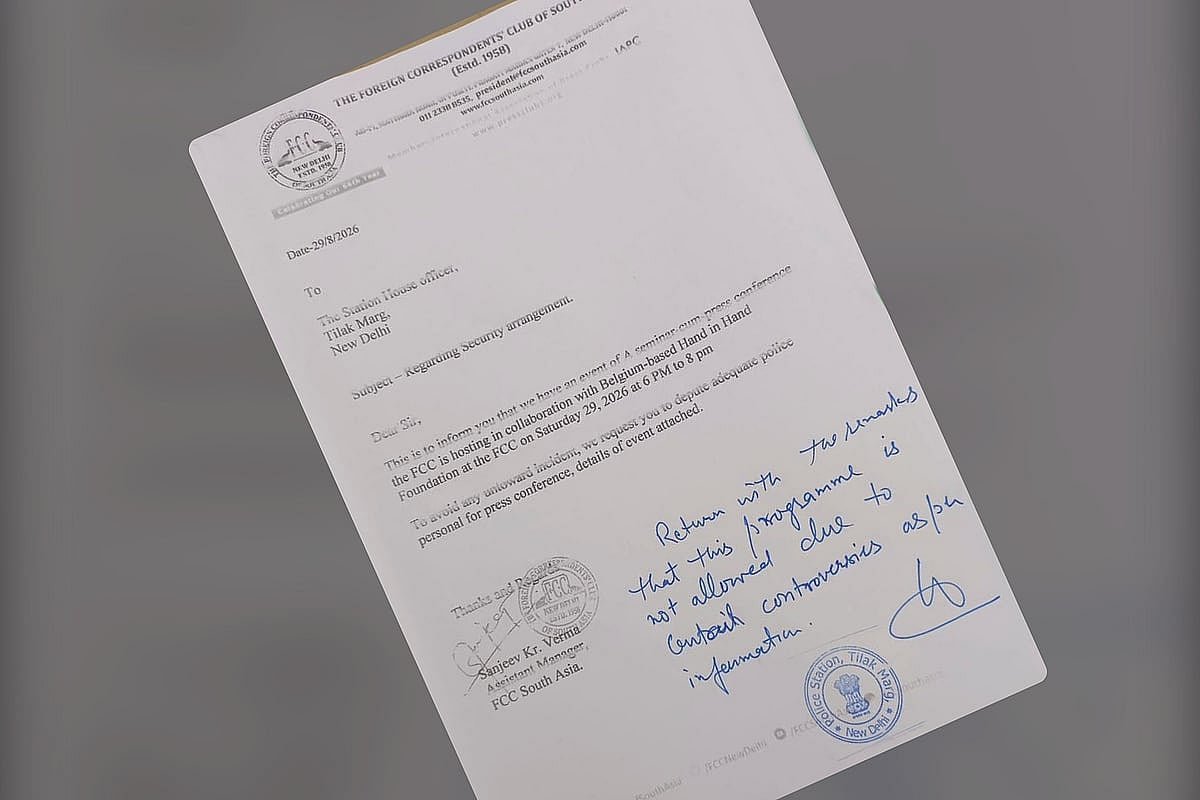 THE FOREIGN CORRESPONDENTS' CLUB OF SOUTH
(Estd. 1958)
NEW DELHI-110001
011 2338 8535, president@fccsouthasia.com
www.fccsouthasia.com
IAPC
www.pressclubs.org
FCC
NEW DELHI
ESTD. 1958
Celebrating Our 68th Year
Date-29/8/2026
To
The Station House officer,
Tilak Marg,
New Delhi
Subject – Regarding Security arrangement.
Dear Sir,
This is to inform you that we have an event of A seminar-cum-press conference
the FCC is hosting in collaboration with Belgium-based Hand in Hand
Foundation at the FCC on Saturday 29, 2026 at 6 PM to 8 pm
To avoid any untoward incident, we request you to depute adequate police
personal for press conference, details of event attached.
Return with the remarks
that this programme is
not allowed due to
controversies as per
information.
Thanks and
FCC
NEW DELHI
ESTD. 1958
OF SOUTH ASIA
Sanjeev Kr. Verma
Assistant Manager,
FCC South Asia.
Police Station, Tilak Marg,
New Delhi
/FCCNewDelhi